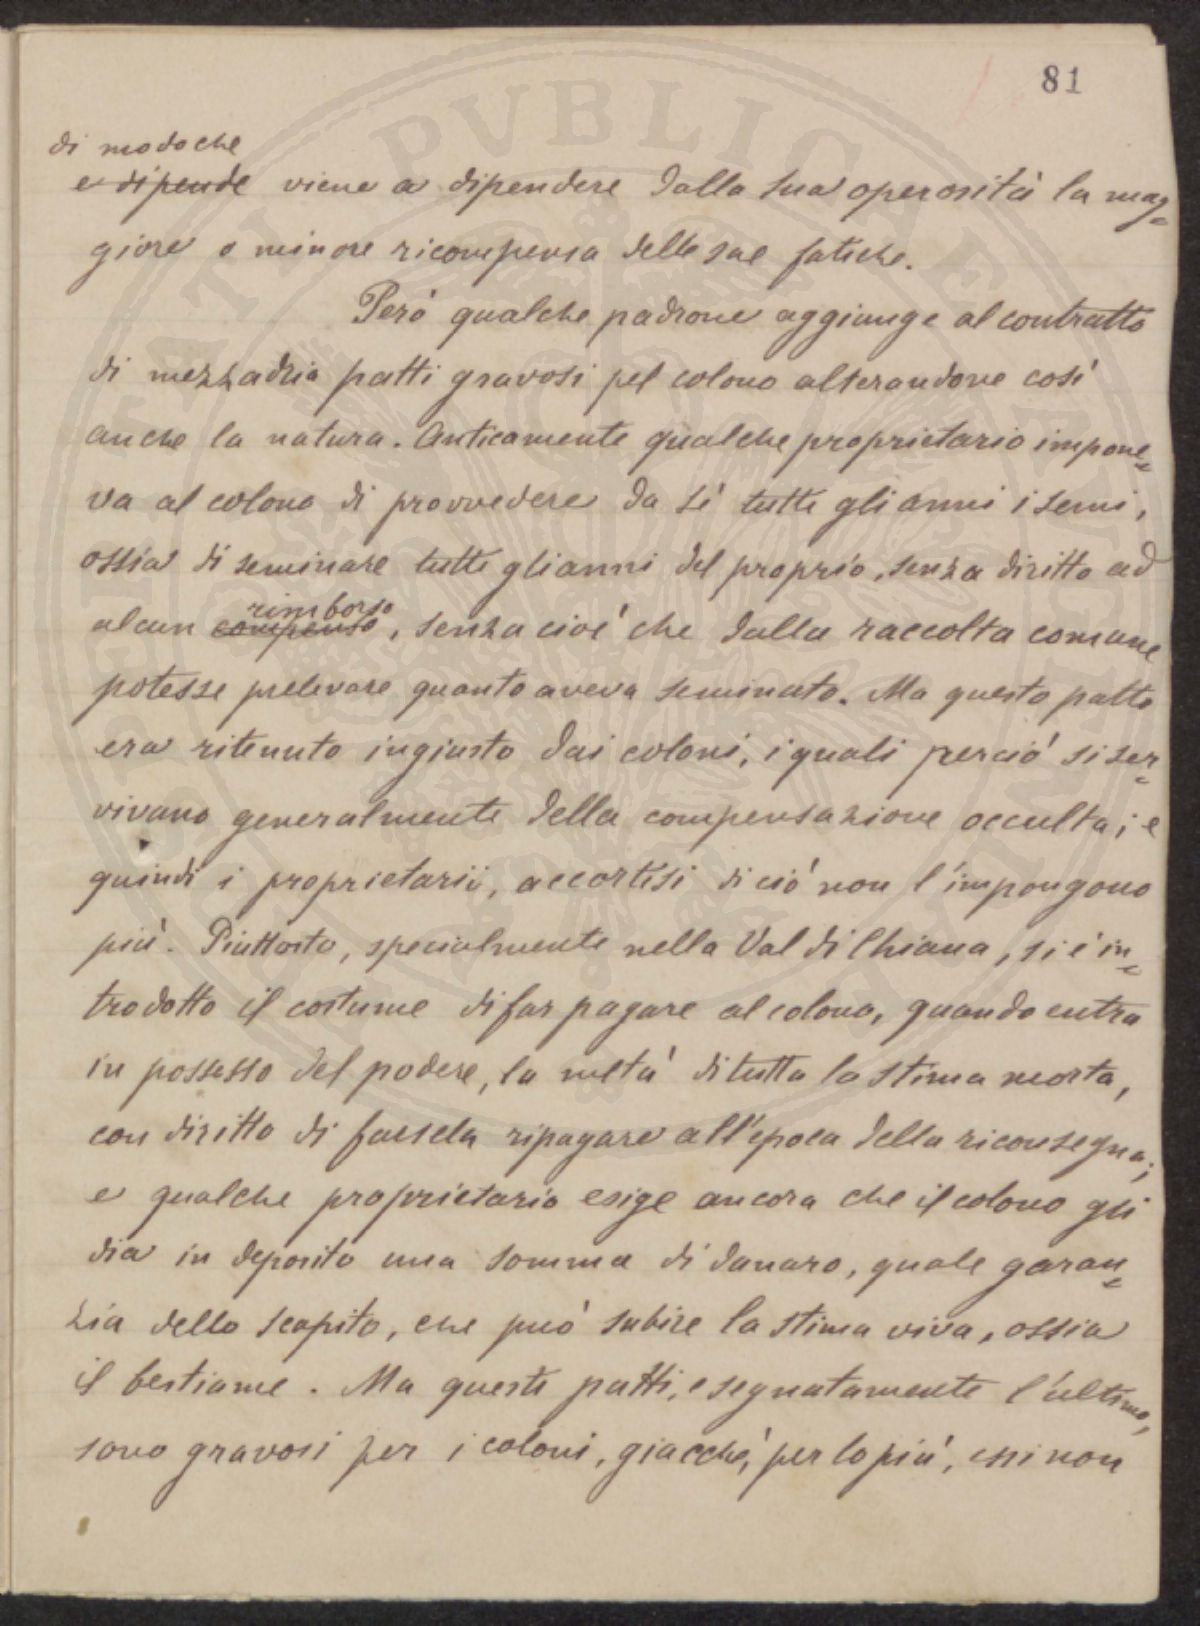 81
di modo che
e dipende viene a dipendere dalla sua operosità la mag=
giore o minore ricompensa delle sue fatiche.
Però qualche padrone aggiunge al contratto
di mezzadria patti gravosi pel colono alterandone così
anche la natura. Anticamente qualche proprietario impone=
va al colono di provvedere da sè tutti gli anni i semi,
ossia di seminare tutti gli anni del proprio, senza diritto ad
rimborso
alcun compenso, senza cioè che dalla raccolta comune
potesse prelevare quanto aveva seminato. Ma questo patto
era ritenuto ingiusto dai coloni, i quali perciò si ser=
vivano generalmente della compensazione occulta; e
quindi i proprietarii, accortisi di ciò non l'impongono
più. Piuttosto, specialmente nella Val di Chiana, si è in=
trodotto il costume di far pagare al colono, quando entra
in possesso del podere, la metà di tutta la stima morta,
con diritto di farsela ripagare all'epoca della riconsegna;
e qualche proprietario esige ancora che il colono gli
dia in deposito una somma di danaro, quale garan=
zia dello scapito, che può subire la stima viva, ossia
il bestiame. Ma questi patti, e segnatamente l'ultimo,
sono gravosi per i coloni, giacchè, per lo più, essi non